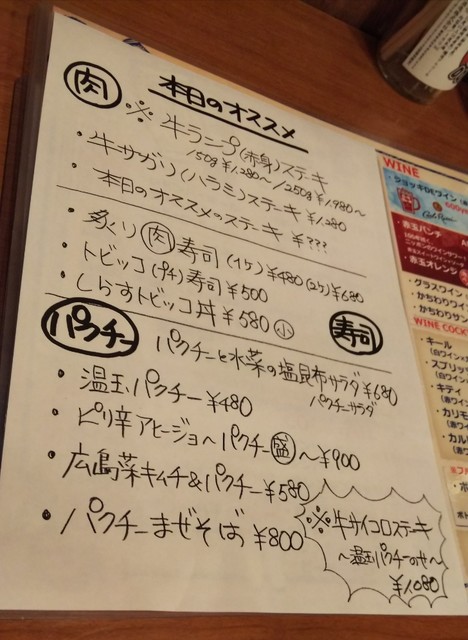 本日のオススメ
肉
※ 牛ランプ(赤身)ステーキ
150g ¥1,280〜/250g ¥1,980〜
・牛サガリ(ハラミ)ステーキ ¥1,280
・本日のオススメのステーキ ¥???
・炙り肉寿司(1ケ)¥480(2ケ)¥680
・トビッコ(プチ)寿司 ¥500
・しらすトビッコ丼 ¥580 小
寿司
パクチー
パクチーと水菜の塩昆布サラダ ¥680
パクチーサラダ
・温玉パクチー ¥480
・ピリ辛アヒージョ〜パクチー盛〜 ¥900
・広島菜キムチ&パクチー ¥580
・パクチーまぜそば ¥800
※牛サイコロステーキ
〜温玉パクチーのせ〜
¥1,080
WINE
・赤玉パンチ
・赤玉オレンジ
・グラスワイン
・かちわりワイン
・かちわりサン
WINE COCK
・キール
・スプリッ
・キティ
・カリモ
・カル